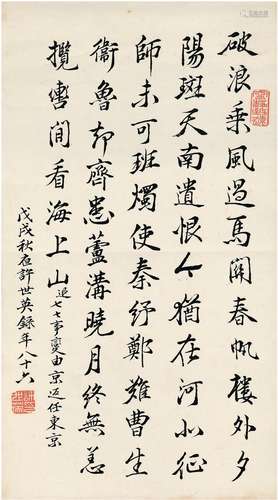 破浪乘風過馬關春帆樓外夕
陽斑天南遺恨今猶在河北征
師未可班燭使秦紓鄭難曹生
衛魯却齊患蘆溝曉月終無恙
攬轡閒看海上山追七七事變由京返任東京
戊戌秋在許世英錄年八十六